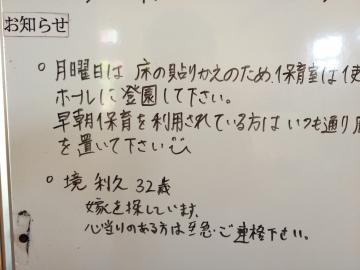 お知らせ
○ 月曜日は 床の貼りかえのため、保育室は使
ホールに登園して下さい。
早朝保育を利用されている方はいつも通り
を置いて下さい
○ 境 利久 32歳
嫁を探しています。
心当りのある方は至急・ご連絡下せい。